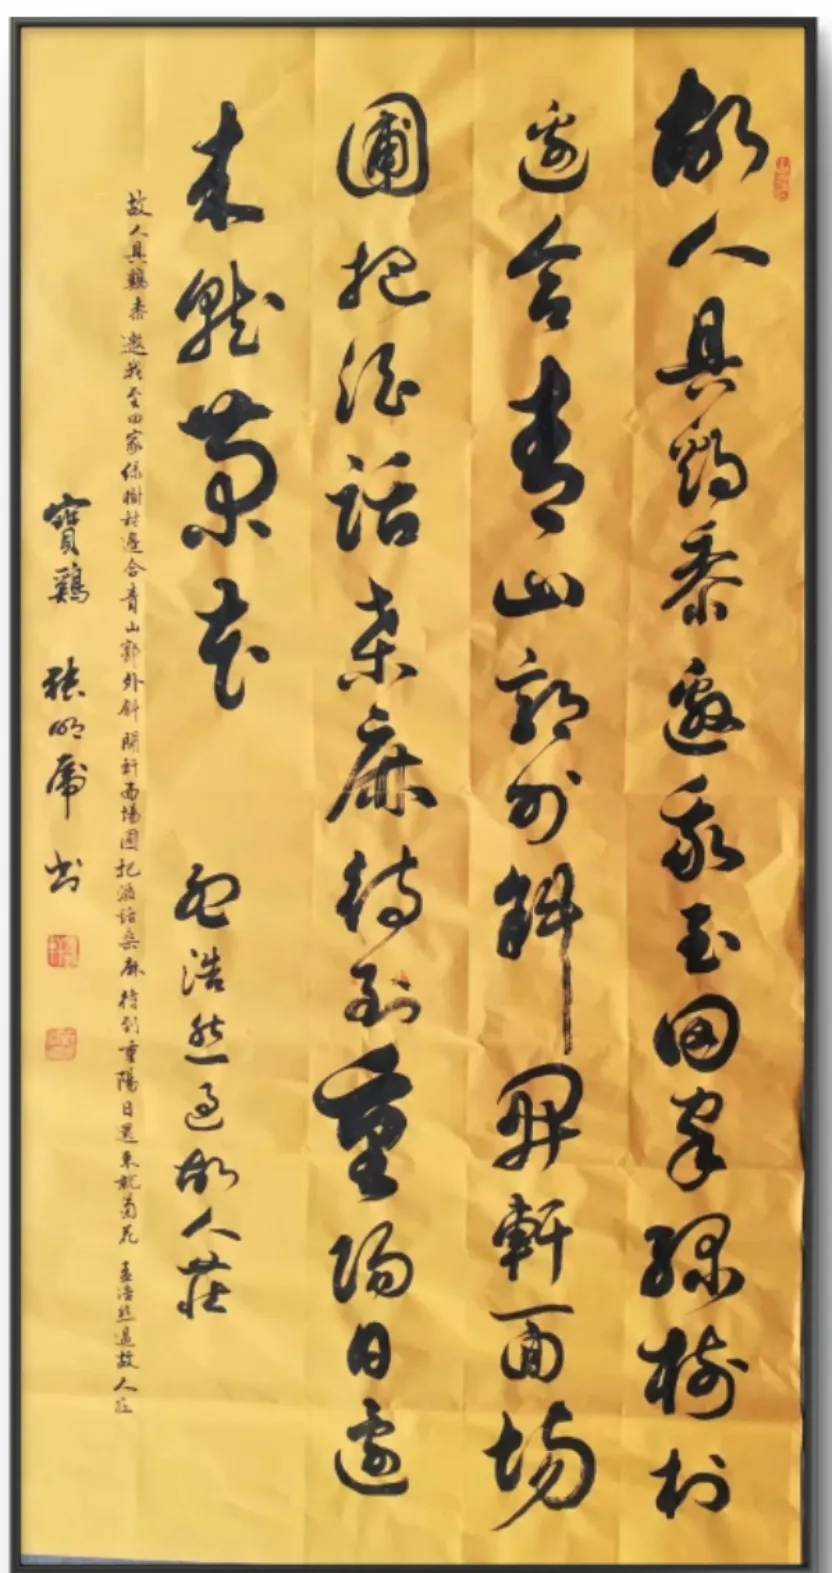 故人具鸡黍邀我至田家绿樹村
邊合青山郭外斜開軒面場
圃把酒話桑麻待到重陽日還
来就菊花
孟浩然過故人莊
故人具鷄黍邀我至田家绿樹村邊合青山郭外斜開軒面場圃把酒話桑麻待到重陽日還来就菊花 孟浩然過故人莊
寶鷄 張明虎书